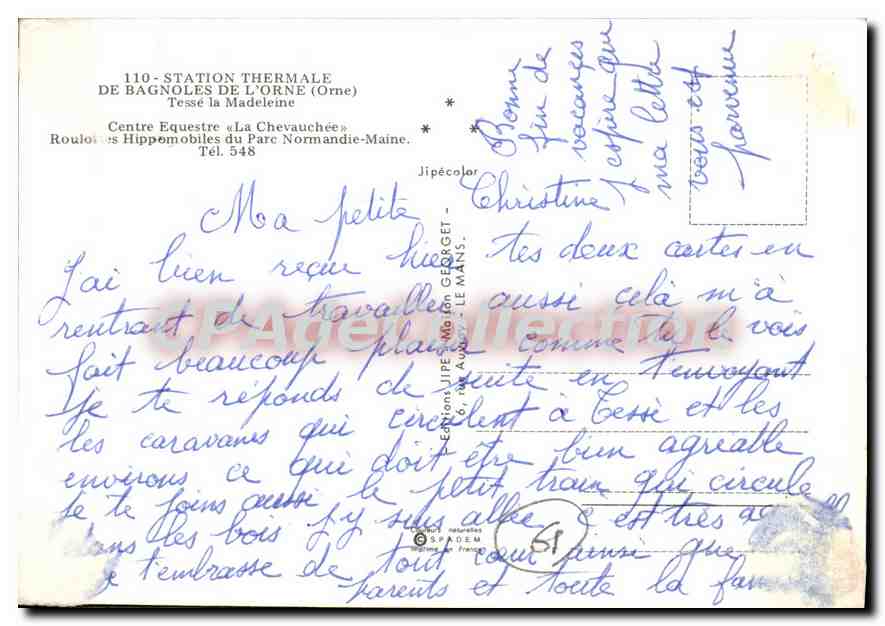 110 - STATION THERMALE
DE BAGNOLES DE L'ORNE (Orne)
Tessé la Madeleine
Centre Equestre «La Chevauchée»
Roulottes Hippomobiles du Parc Normandie-Maine.
Tél. 548
Jipécolor
Editions JIPE - Maison GEORGET -
6, rue Auvray - LE MANS.
Ma petite Christine
J'ai bien reçue hier tes deux cartes en
rentrant de travailler aussi celà m'à
fait beaucoup plaisir comme tu le vois
je te réponds de suite en t'envoyant
les caravanes qui circulent à Tessé et les
environs ce qui doit être bien agréable
Je te joins aussi le petit train qui circule
dans les bois j'y suis allée c'est très
t'embrasse de tout cœur ainsi que
parents et toute la
Bonne
fin de
vacances
j'espère que
ma lettre
vous est
parvenue
Couleurs naturelles
© S.P.A.D.E.M.
Imprimé en France
61
CPArtCollection